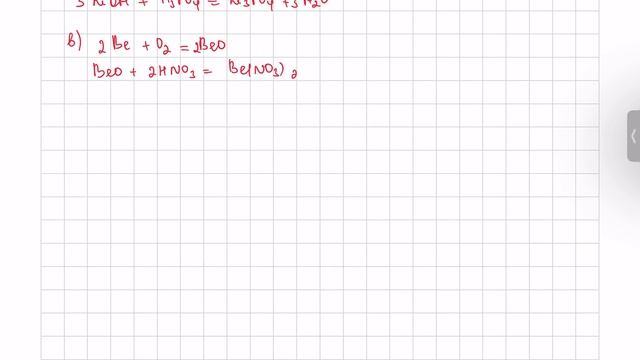 в) 2Be + O₂ = 2BeO
BeO + 2HNO₃ = Be(NO₃)₂